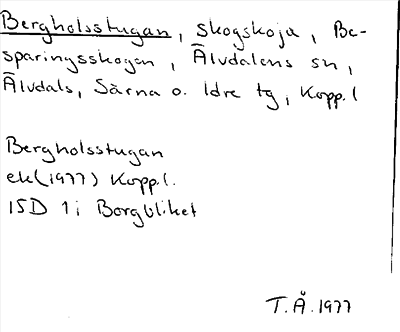 Bergholsstugan, skogskoja, Be-
sparingsskogen, Älvdalens sn,
Älvdals, Särna o. Idre tg, Kopp.l
Bergholsstugan
ek(1977) Kopp.l.
15D 1i Borgbliket
T.Å.1977